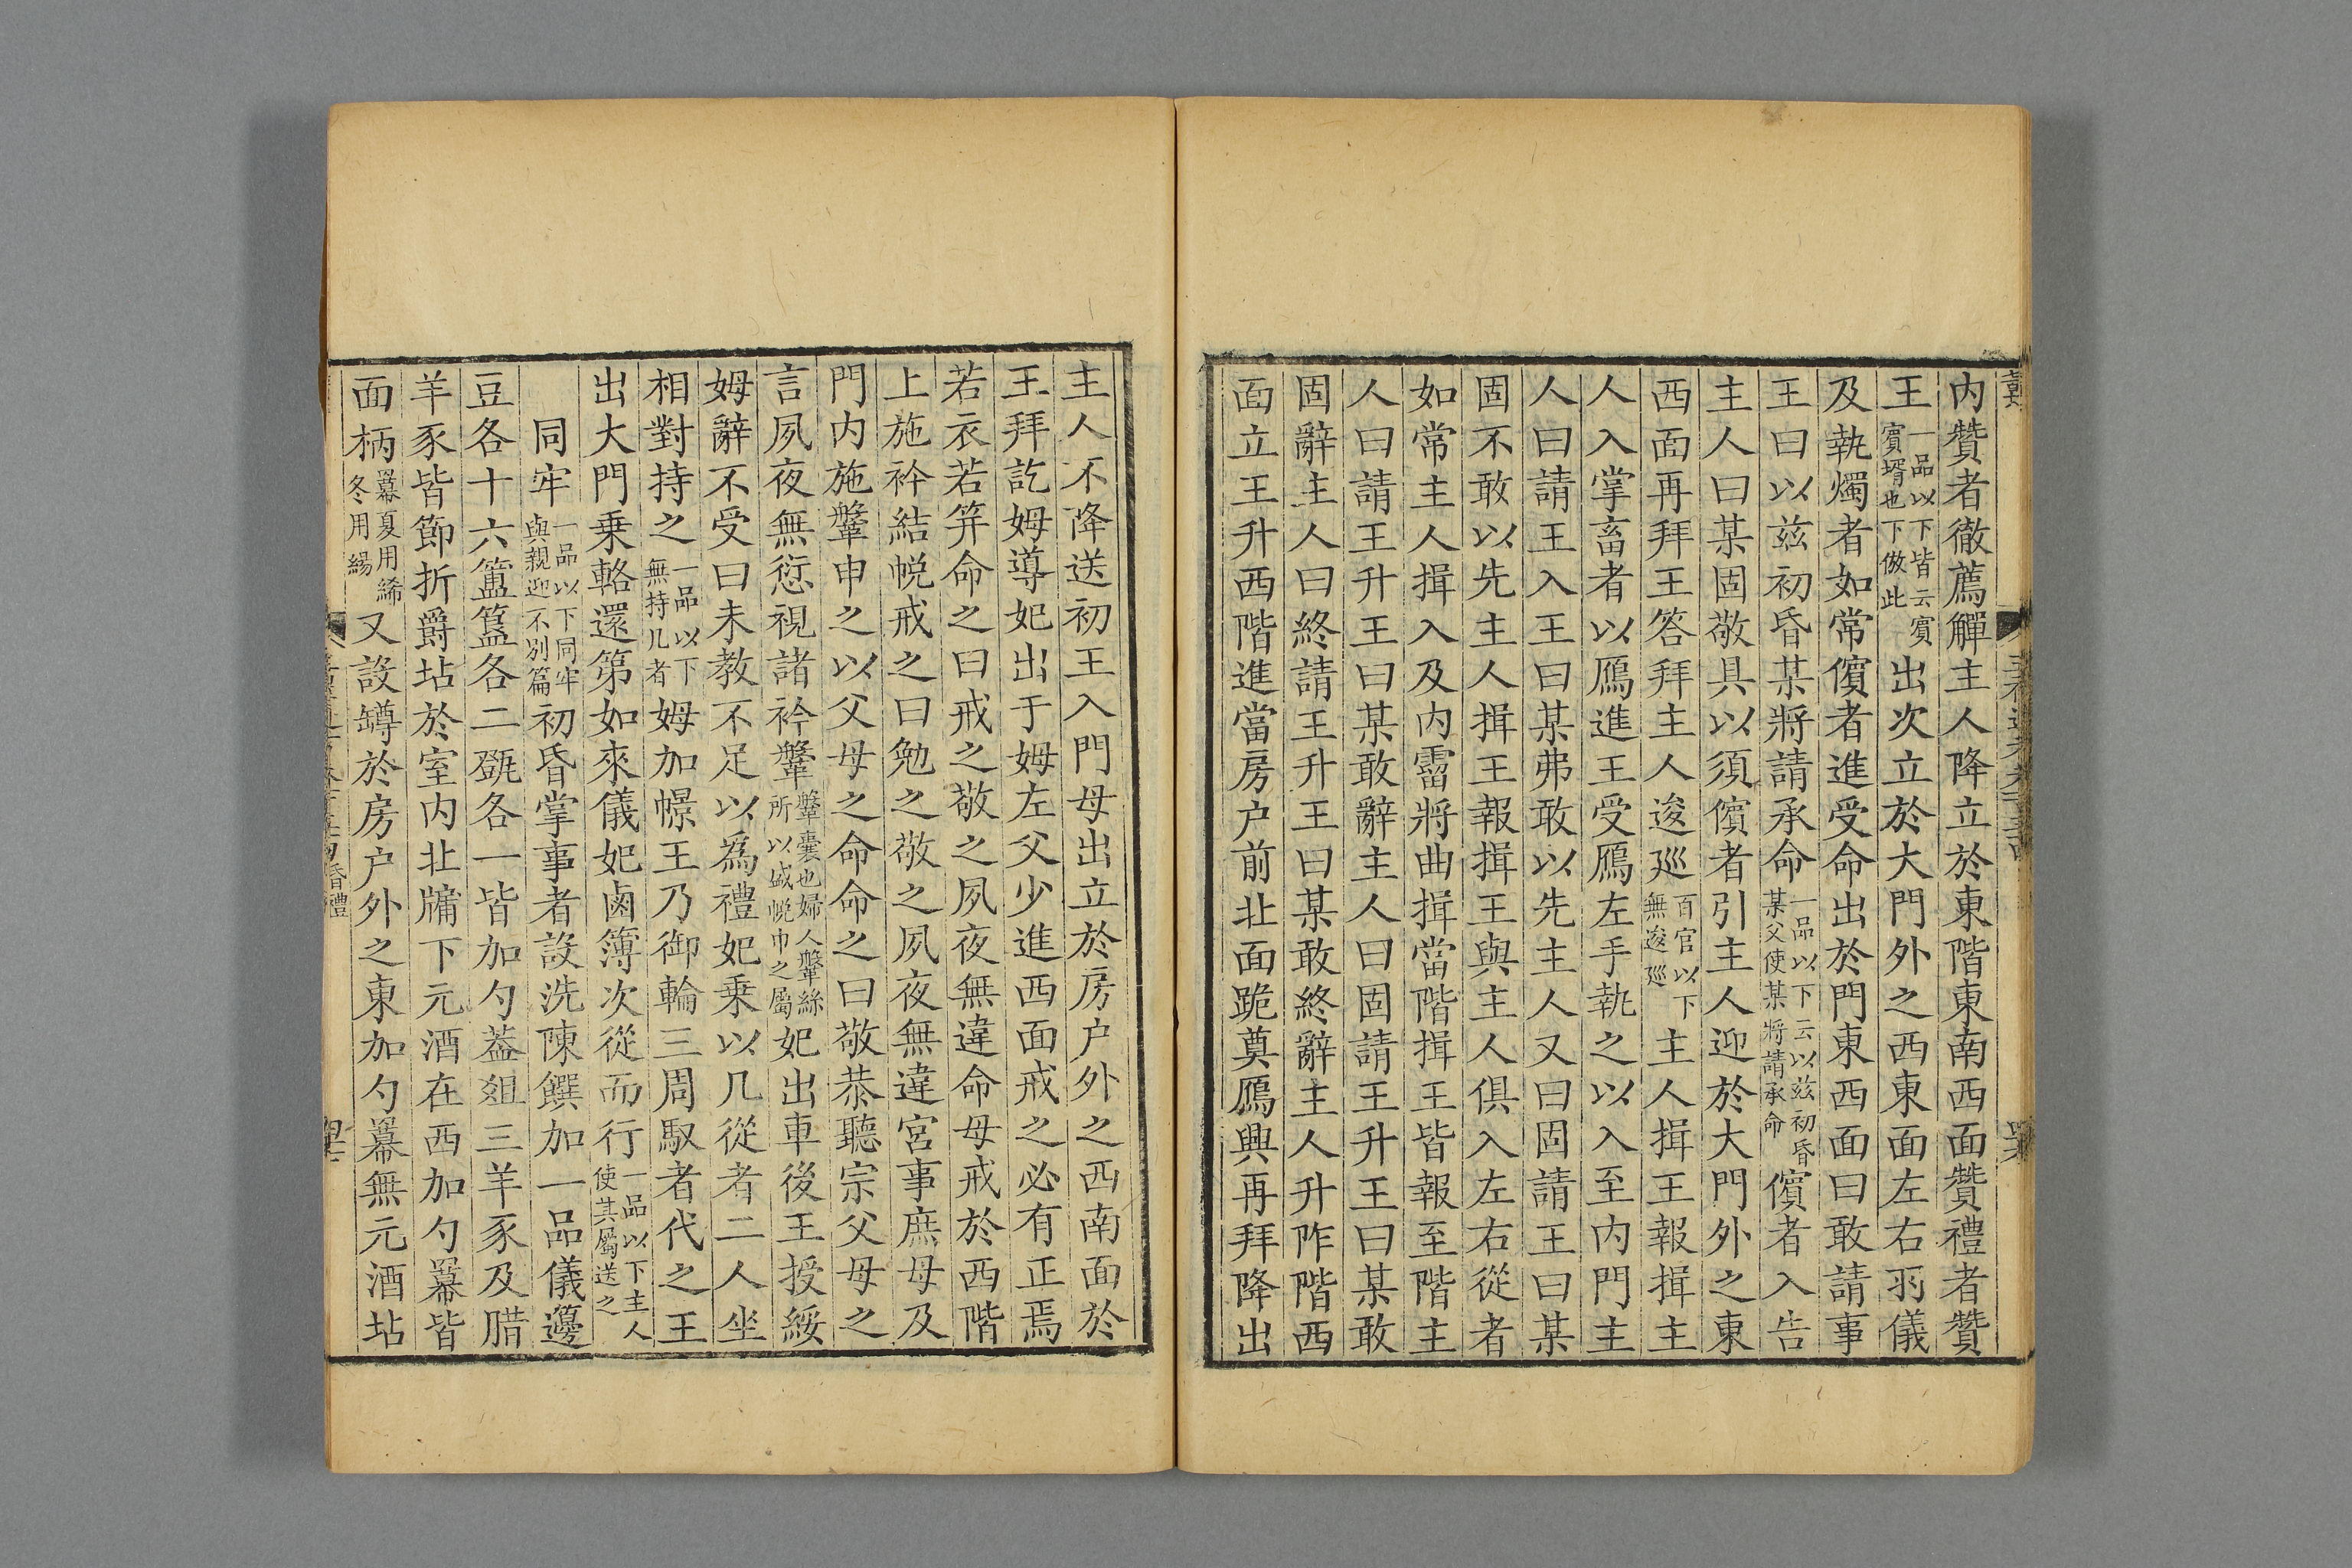 内贊者徹薦觶主人降立於東階東南西面贊禮者贊
王一品以下皆云賓賓壻也下倣此出次立於大門外之西東面左右羽儀
及執燭者如常儐者進受命出於門東西面曰敢請事
王曰以兹初昏某將請承命一品以下云以兹初昏某父使某將請承命儐者入告
主人曰某固敬具以須儐者引主人迎於大門外之東
西面再拜王答拜主人逡巡百官以下無逡巡主人揖王報揖主
人入掌畜者以鴈進王受鴈左手執之以入至内門主
人曰請王入王曰某弗敢以先主人又曰固請王曰某
固不敢以先主人揖王報揖王與主人俱入左右從者
如常主人揖入及内霤將曲揖當階揖王皆報至階主
人曰請王升王曰某敢辭主人曰固請王升王曰某敢
固辭主人曰終請王升王曰某敢終辭主人升阼階西
面立王升西階進當房户前北面跪奠鴈興再拜降出
主人不降送初王入門母出立於房户外之西南面於
王拜訖姆導妃出于姆左父少進西面戒之必有正焉
若衣若笄命之曰戒之敬之夙夜無違命母戒於西階
上施衿結帨戒之曰勉之敬之夙夜無違宮事庶母及
門内施鞶申之以父母之命命之曰敬恭聽宗父母之
言夙夜無愆視諸衿鞶鞶囊也婦人鞶絲所以盛帨巾之屬妃出車後王授綏
姆辭不受曰未教不足以爲禮妃乘以几從者二人坐
相對持之一品以下無持几者姆加幜王乃御輪三周馭者代之王
出大門乗輅還第如來儀妃鹵簿次從而行一品以下主人使其屬送之
同牢一品以下同牢與親迎不别篇初昏掌事者設洗陳饌加一品儀籩
豆各十六簠簋各二㽅各一皆加勺蓋俎三羊豕及腊
羊豕皆節折爵坫於室内北牖下元酒在西加勺冪皆
面柄冪夏用綌冬用緆又設罇於房户外之東加勺冪無元酒坫
昏禮